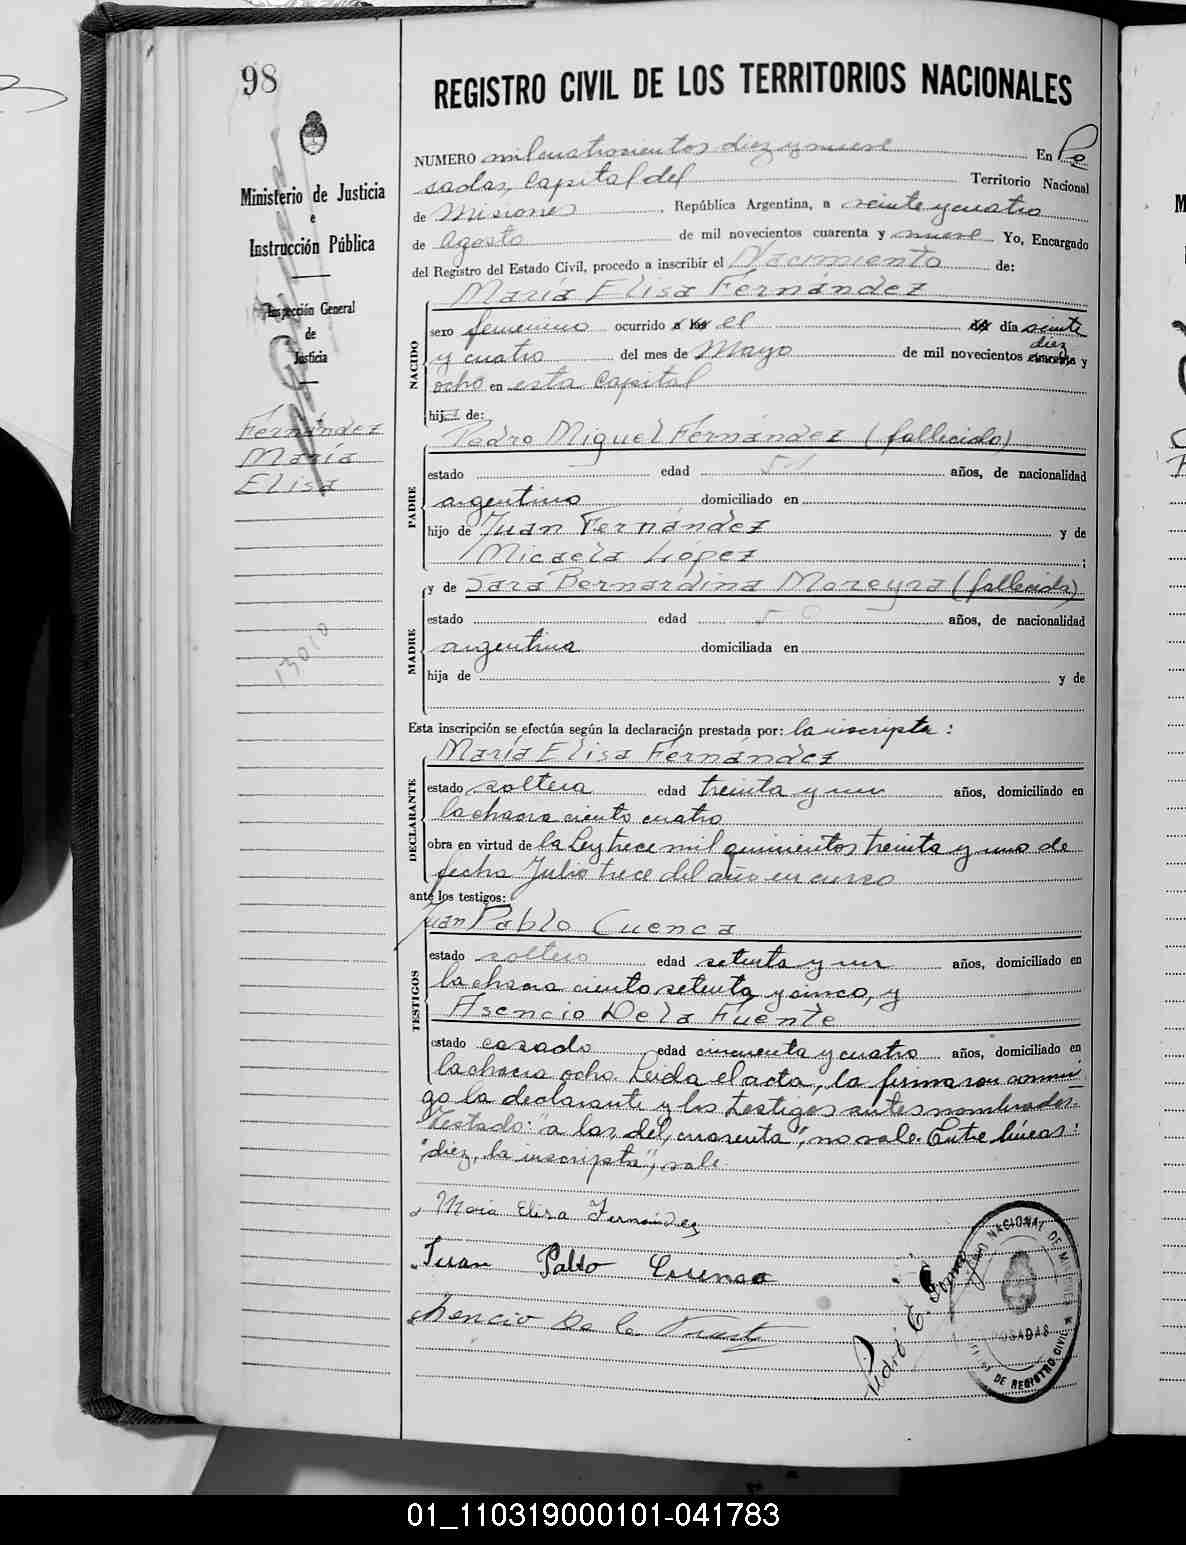 98
REGISTRO CIVIL DE LOS TERRITORIOS NACIONALES
Ministerio de Justicia
e
Instrucción Pública
Inspección General
de
Justicia
Fernández
María
Elisa
13010
NUMERO mil cuatrocientos diez y nueve En Po
sadas, Capital del Territorio Nacional
de Misiones, República Argentina, a veinte y cuatro
de Agosto de mil novecientos cuarenta y nueve Yo, Encargado
del Registro del Estado Civil, procedo a inscribir el Nacimiento de:
María Elisa Fernández
NACIDO
sexo femenino ocurrido a las el del día veinte
y cuatro del mes de Mayo de mil novecientos cuarenta diez y
ocho en esta Capital
hija de:
PADRE
Pedro Miguel Fernández (fallecido)
estado edad años, de nacionalidad
argentino domiciliado en
hijo de Juan Fernández y de
Micaela López ;
MADRE
y de Sara Bernardina Moreyra (fallecida)
estado edad años, de nacionalidad
argentina domiciliada en
hija de y de
Esta inscripción se efectúa según la declaración prestada por: la inscripta :
DECLARANTE
María Elisa Fernández
estado soltera edad treinta y un años, domiciliado en
la chacra ciento cuatro
obra en virtud de la Ley trece mil quinientos treinta y uno de
fecha Julio trece del año en curso
ante los testigos:
TESTIGOS
Juan Pablo Cuenca
estado soltero edad setenta y un años, domiciliado en
la chacra ciento setenta y cinco, y
Asencio De la Fuente
estado casado edad cincuenta y cuatro años, domiciliado en
la chacra ocho. Leida el acta, la firmaron conmi
go la declarante y los testigos antes nombrados.
Testado: "a las, del, cuarenta", no vale. Entre líneas:
"diez, la inscripta", vale.
Maria Elisa Fernández
Juan Pablo Cuenca
Asencio De la Fuente
Pedro E.
NACIONAL DE MISIONES
POSADAS
DE REGISTRO CIVIL
01_110319000101-041783